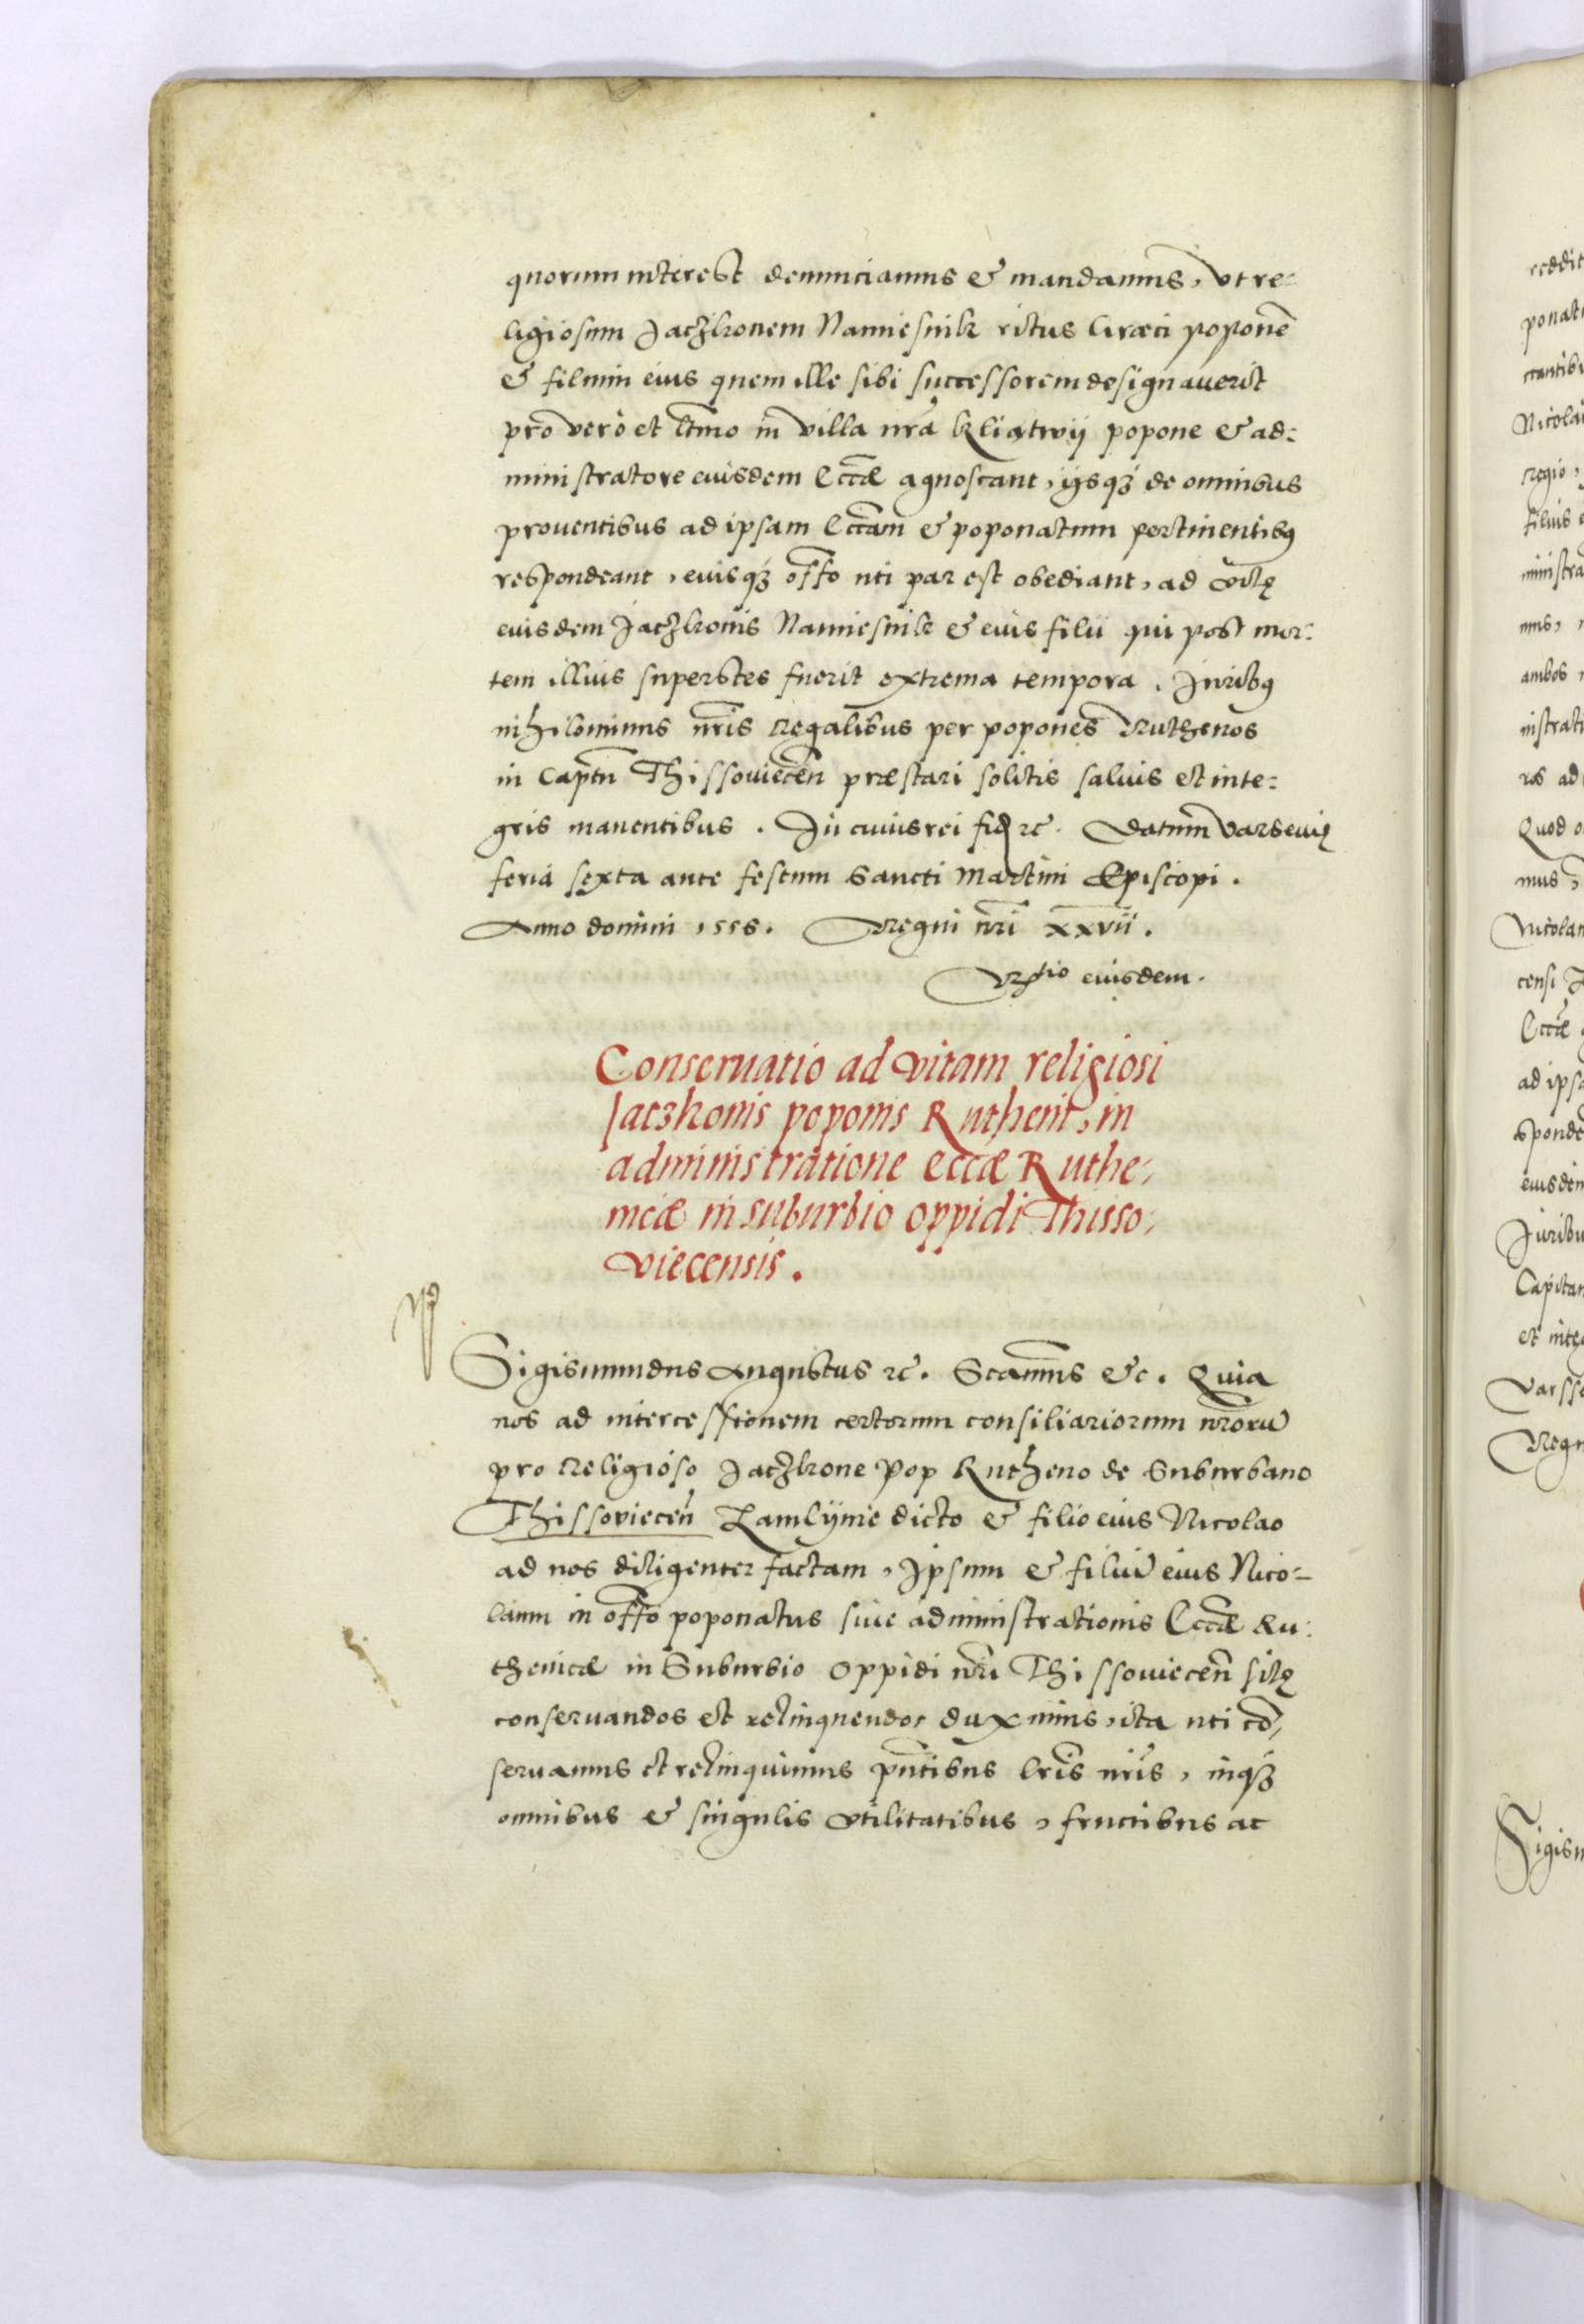 quorum interest denunciamus & mandamus, vt re-
ligiosum Jaczkonem Namiesnik ritus Græci poponē
& filium eius quem ille sibi successorem designauerit
pro vero et ltimo in villa nrā Kliatwÿ popone & ad:
ministratore eiusdem Eccæ agnoscant, ÿsqȝ de omnibus
prouentibus ad ipsam Eccam & poponatum pertinentibꝫ
respondeant, eiusqȝ offo uti par est obediant, ad vitę
eiusdem Jaczkonis Namiesnik & eius filii qui post mor:
tem illius superstes fuerit extrema tempora. Juribꝫ
nihilominus nris Regalibus per popones Ruthenos
in Captu Thissouiecen̄ præstari solitis saluis et inte:
gris manentibus. In cuius rei fid ⁊c. Datum Varseuię
feria sexta ante festum Sancti Martini Episcopi.
Anno domini 1556. Regni nri xxvii.
Rtio eiusdem.
Conseruatio ad vitam religiosi
Jaczkonis poponis Rutheni, in
administratione eccæ Ruthe-
nicæ in suburbio oppidi Thisso-
viecensis.
Sigismundus Augustus ⁊c. Scamus &c. Quia
nos ad intercessionem certorum consiliariorum nrorū
pro Religioso Jaczkone Pop Rutheno de Suburbano
Thissoviecen̄ Zamlÿnie dicto & filio eius Nicolao
ad nos diligenter factam, Ipsum & filiū eius Nico-
laum in offo poponatus siue administrationis Eccæ Ru:
thenicæ in Suburbio Oppidi nri Thissouiecen̄ sitę
conseruandos et relinquendos duximus, ita uti cō-
seruamus et relinquimus pn̄tibus lris nris, inqȝ
omnibus & singulis vtilitatibus, fructibus ac